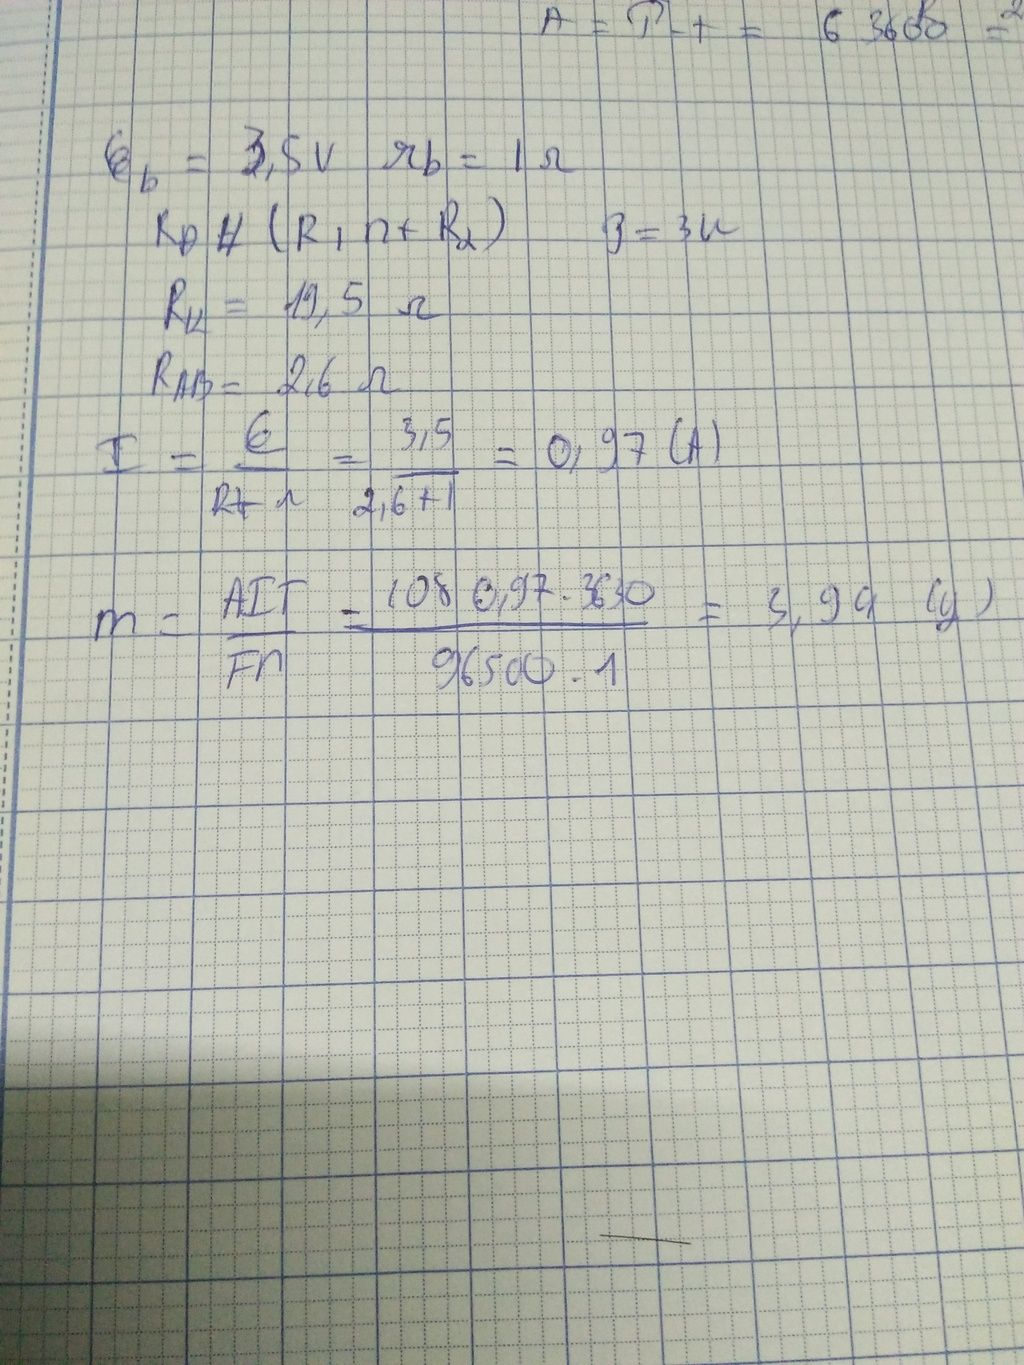 A = P t = 6 3600 = 2
ϵb = 3,5V rb = 1 Ω
RĐ // (R1 nt R2)
RK = 19,5 Ω
RAB = 2,6 Ω
I = ϵ / R+ r = 3,5 / 2,6+1 = 0,97 (A)
m = AIT / Fn = 108 0,97. 3630 / 96500 . 1 = 3,94 (g)